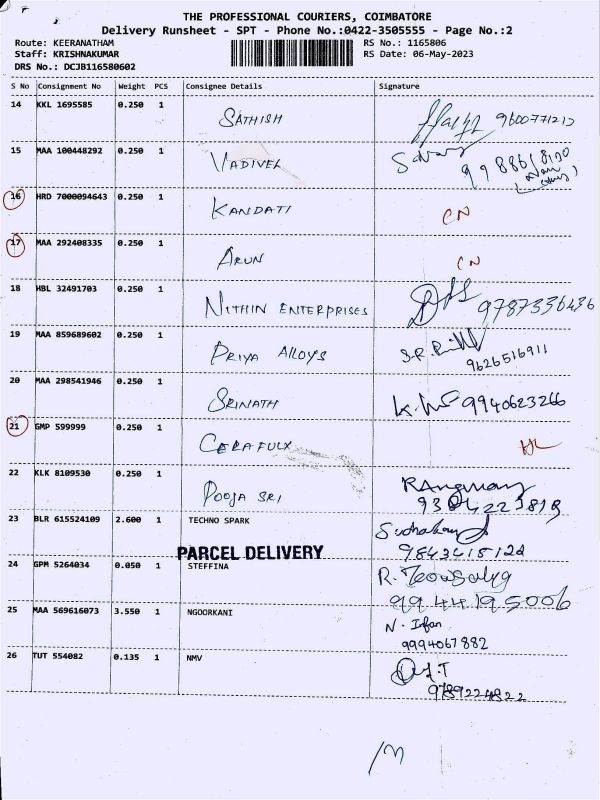 THE PROFESSIONAL COURIERS, COIMBATORE
Delivery Runsheet - SPT - Phone No.:0422-3505555 - Page No.:2
Route: KEERANATHAM RS No.: 1165806
Staff: KRISHNAKUMAR RS Date: 06-May-2023
DRS No.: DCJB116580602
S No Consignment No Weight PCS Consignee Details Signature
14 KKL 1695585 0.250 1 SATHISH 9600771212
15 MAA 100448292 0.250 1 VADIVEL
16 HRD 7000094643 0.250 1 KANDATI CN
17 MAA 292408335 0.250 1 ARUN CN
18 HBL 32491703 0.250 1 NITHIN ENTERPRISES 9787336436
19 MAA 859689602 0.250 1 PRIYA ALLOYS 9626516911
20 MAA 298541946 0.250 1 SRINATH 9940623266
21 GMP 599999 0.250 1 CERAFULX
22 KLK 8109530 0.250 1 POOJA SRI
23 BLR 615524109 2.600 1 TECHNO SPARK 9843418122
PARCEL DELIVERY
24 GPM 5264034 0.050 1 STEFFINA 9944195006
25 MAA 569616073 3.550 1 NGOORKANI N. Irfan
9994067882
26 TUT 554082 0.135 1 NMV 9789224822